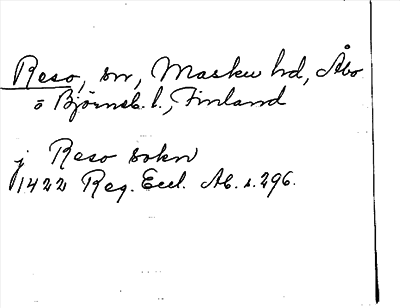 Reso, sn, Masku hd, Åbo
o Björneb. l., Finland
j Reso sokn
1422 Reg. Eccl. Ab. s. 296.